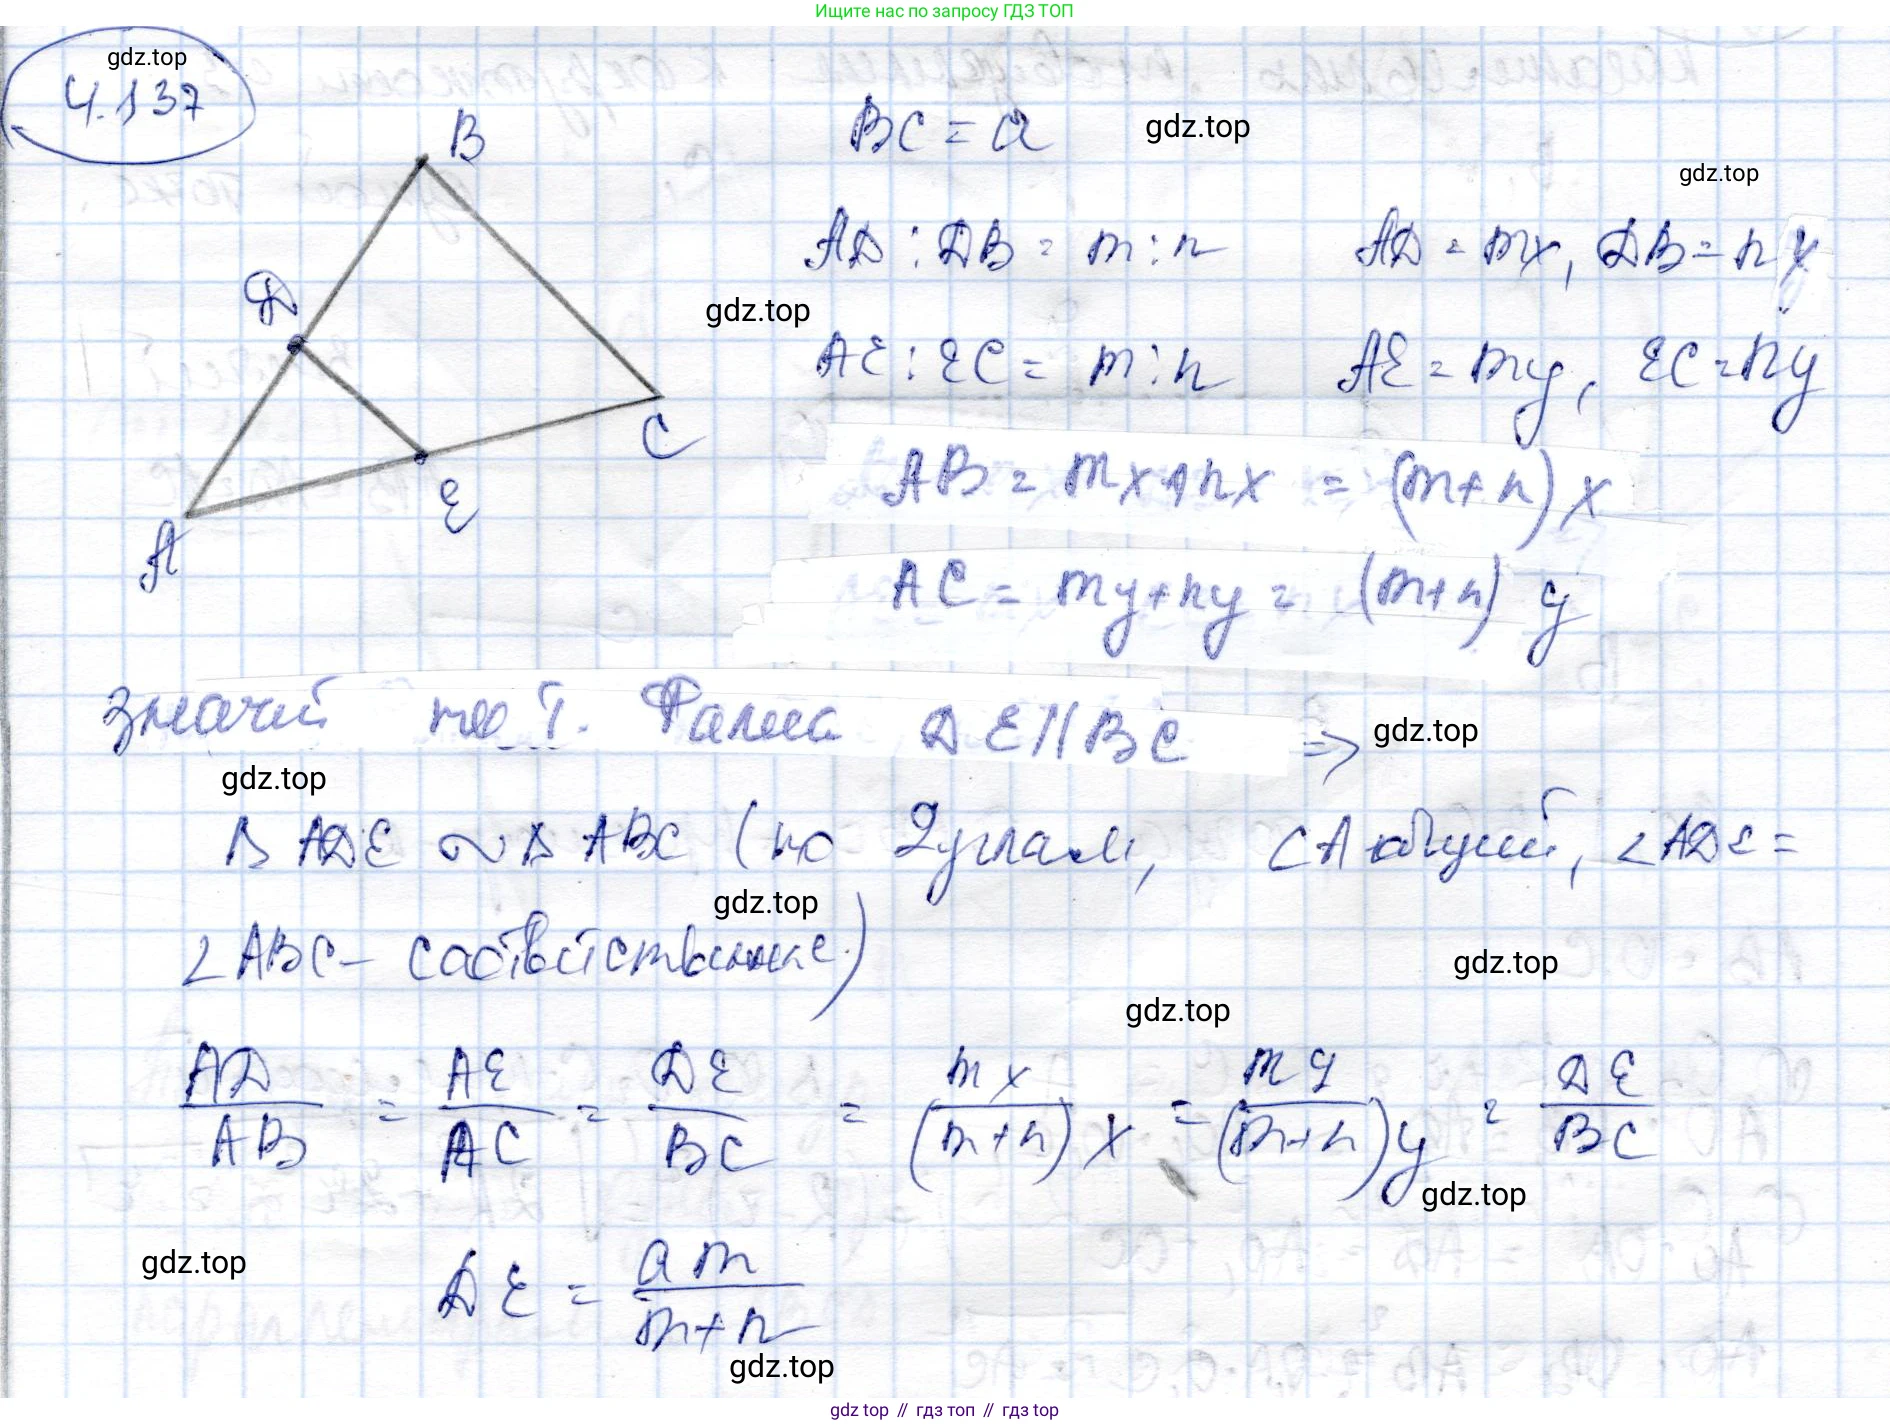 Ищите нас по запросу ГДЗ ТОП
gdz.top
4.137
B
BC = a
gdz.top
gdz.top
AD : DB = m : n
AD = mx, DB = nx
D
gdz.top
AE : EC = m : n
AE = my, EC = ny
C
AB = mx + nx = (m+n) x
E
A
AC = my + ny = (m+n) y
Значит по т. Фалеса DE || BC =>
gdz.top
gdz.top
Δ ADE ~ Δ ABC (по 2 углам, ∠A общий, ∠ADE =
gdz.top
∠ABC - соответственные)
gdz.top
gdz.top
AD/AB = AE/AC = DE/BC = mx/(m+n)x = my/(m+n)y = DE/BC
gdz.top
gdz.top
DE = am/m+n
gdz.top
gdz top // гдз топ // гдз top